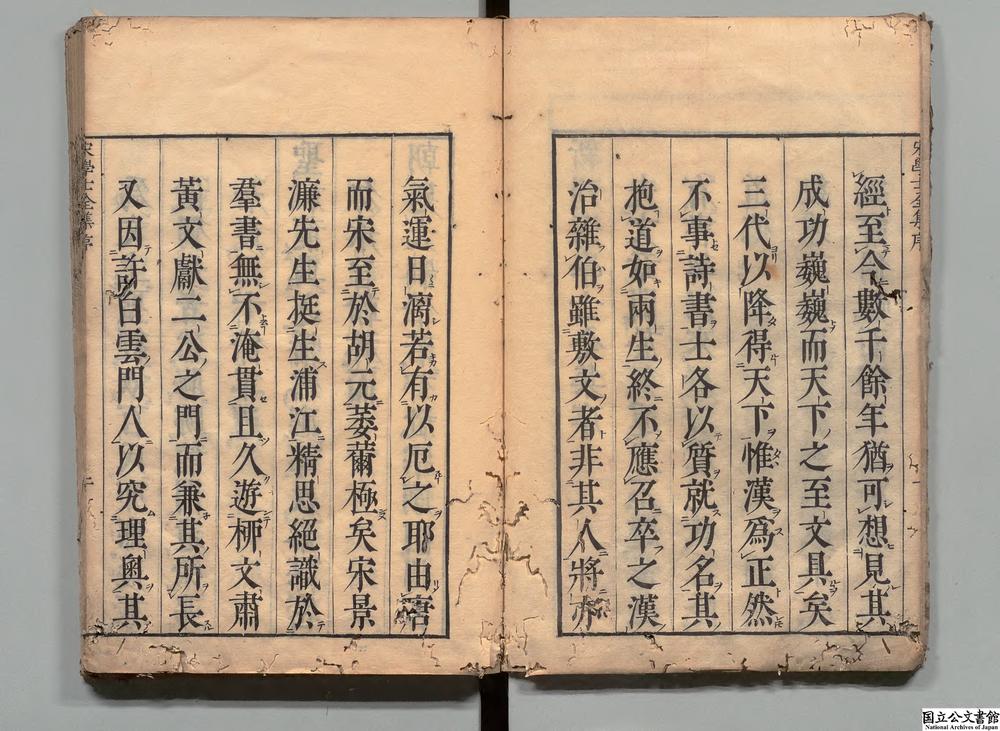 經至今數千餘年猶可想見其
成功巍巍而天下之至文具矣
三代以降得天下惟漢為正然
不事詩書士各以質就功名其
抱道如兩生終不應召卒之漢
治雜伯雖敷文者非其人將亦
氣運日漓若有以厄之耶由唐
而宋至於胡元萎薾極矣宋景
濂先生挺生浦江精思絕識於
羣書無不淹貫且久遊栁文肅
黃文獻二公之門而兼其所長
又因許白雲門人以究理奧其
宋學士全集序
宋學士全集序
国立公文書館
National Archives of Japan